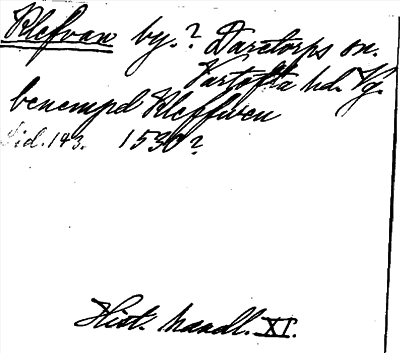 Klefvan by.? Daretorps sn.
Vartofta hd. Vg.
benempd Kleffwen
Sid. 143. 1530?
Hist. handl. XI.